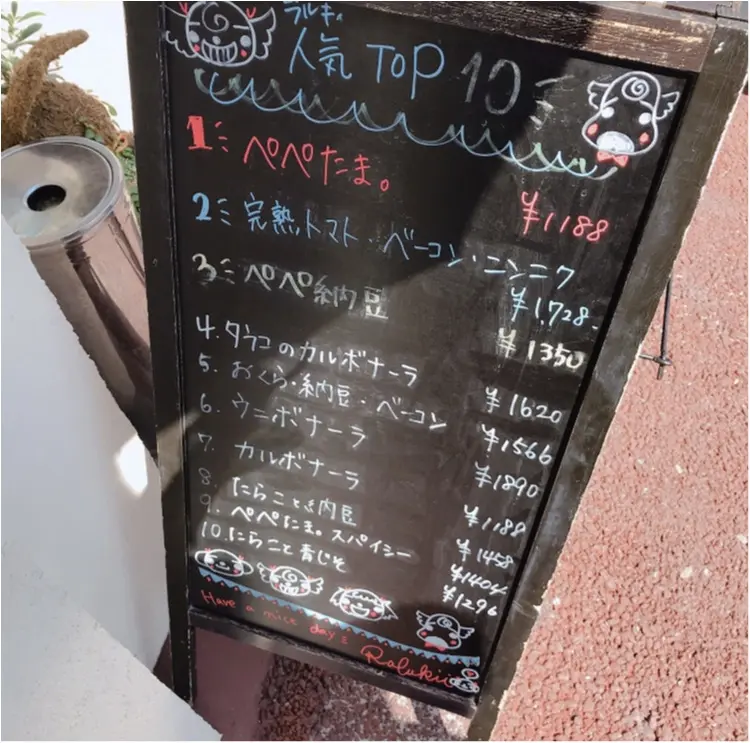 ラルキィ
人気 TOP 10
1 ぺぺたま。
¥1188
2 完熟トマト・ベーコン・ニンニク
¥1,728-
3 ぺぺ納豆
¥1350
4. タラコのカルボナーラ
¥1620
5. おくら・納豆・ベーコン
¥1566
6. ウニボナーラ
¥1890
7. カルボナーラ
¥1188
8. にらこと納豆
¥1458
9. ぺぺたま。スパイシー
¥1404
10. にらこと青じそ
¥1296
Have a nice day
Ralukii